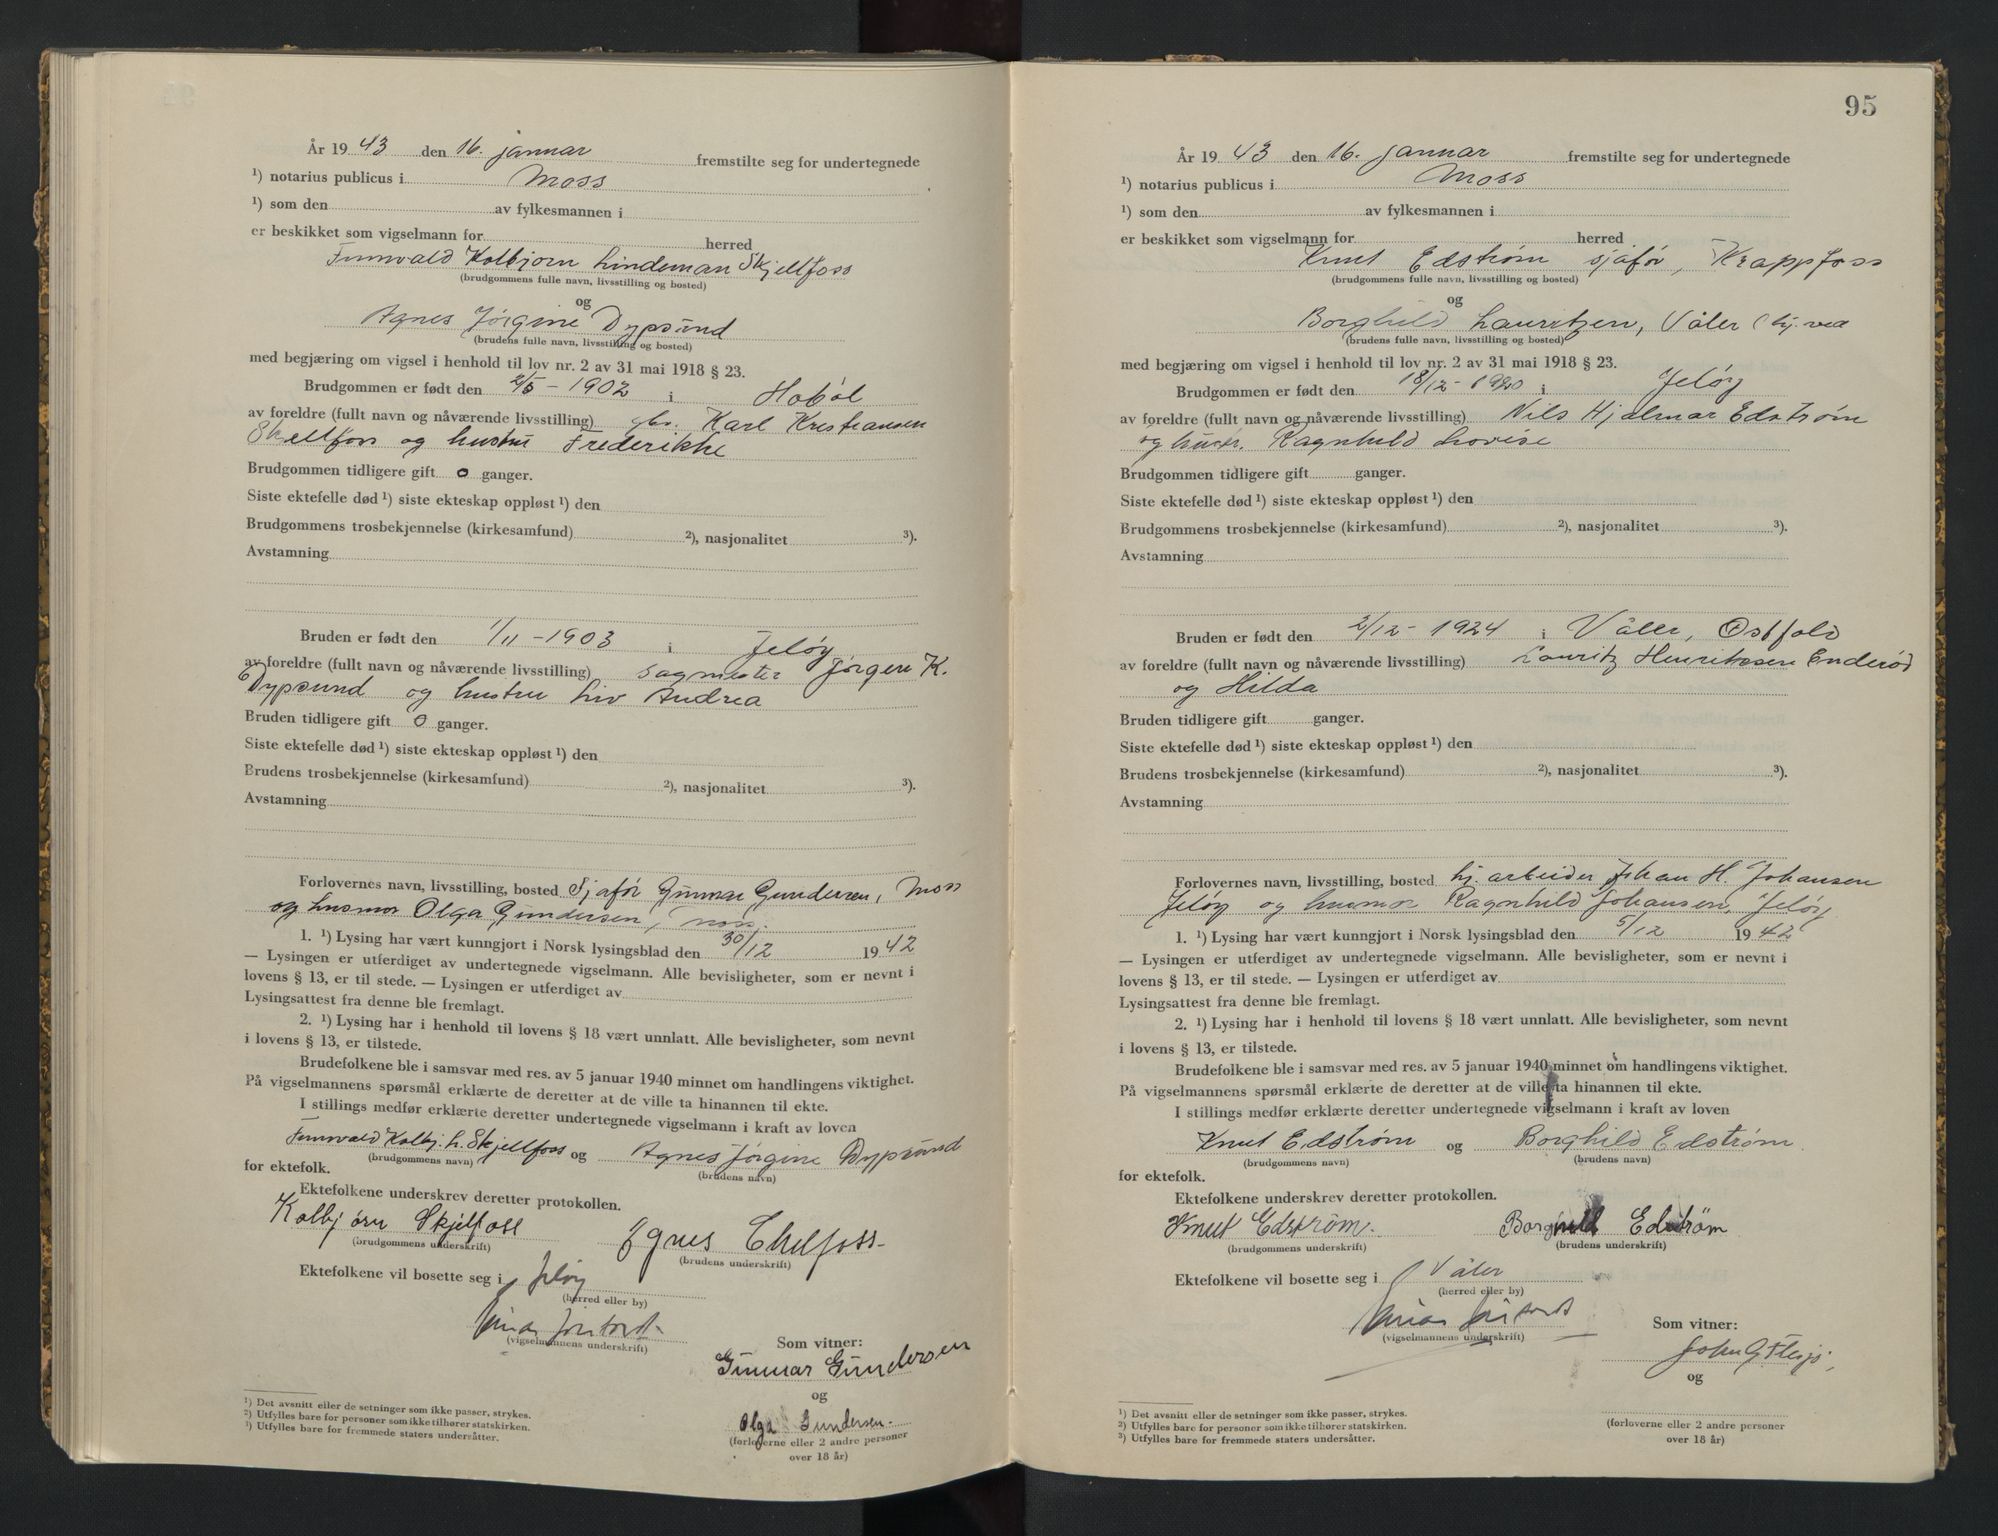 År 19 43 den 16. januar fremstilte seg for undertegnede
¹) notarius publicus i Moss
¹) som den av fylkesmannen i
er beskikket som vigselmann for herred
Kolbjørn Lindeman Skjeltfoss
(brudgommens fulle navn, livsstilling og bosted)
og
Agnes Jørgine Dypsund
(brudens fulle navn, livsstilling og bosted)
med begjæring om vigsel i henhold til lov nr. 2 av 31 mai 1918 § 23.
Brudgommen er født den 2/5 - 1902 i Hobøl
av foreldre (fullt navn og nåværende livsstilling) gbr. Karl Kristiansen
Skeltfoss og hustru Frederikke
Brudgommen tidligere gift 0 ganger.
Siste ektefelle død ¹) siste ekteskap oppløst ¹) den
Brudgommens trosbekjennelse (kirkesamfund) ²), nasjonalitet ³).
Avstamning
Bruden er født den 1/11 - 1903 i Jeløy
av foreldre (fullt navn og nåværende livsstilling) sagmester Jørgen K.
Dypsund og hustru Liv Andrea
Bruden tidligere gift 0 ganger.
Siste ektefelle død ¹) siste ekteskap oppløst ¹) den
Brudens trosbekjennelse (kirkesamfund) ²), nasjonalitet ³).
Avstamning
Forlovernes navn, livsstilling, bosted Sjåfør Gunnar Gundersen, Moss
og husmor Olga Gundersen, Moss.
1. ¹) Lysing har vært kunngjort i Norsk lysingsblad den 30/12 19 42
— Lysingen er utferdiget av undertegnede vigselmann. Alle bevisligheter, som er nevnt i
lovens § 13, er til stede. — Lysingen er utferdiget av
Lysingsattest fra denne ble fremlagt.
2. ¹) Lysing har i henhold til lovens § 18 vært unnlatt. Alle bevisligheter, som nevnt
i lovens § 13, er tilstede.
Brudefolkene ble i samsvar med res. av 5 januar 1940 minnet om handlingens viktighet.
På vigselmannens spørsmål erklærte de deretter at de ville ta hinannen til ekte.
I stillings medfør erklærte deretter undertegnede vigselmann i kraft av loven
Kolbj. L. Skjeltfoss og Agnes Jørgine Dypsund
(brudgommens navn) (brudens navn)
for ektefolk.
Ektefolkene underskrev deretter protokollen.
Kolbjørn Skjelfoss Agnes Chelfoss
(brudgommens underskrift) (brudens underskrift)
Ektefolkene vil bosette seg i Jeløy
(herred eller by)
(vigselmannens underskrift)
Som vitner:
Gunnar Gundersen
og
Olga Gundersen.
(forloverne eller 2 andre personer
over 18 år)
¹) Det avsnitt eller de setninger som ikke passer, strykes.
²) Utfylles bare for personer som ikke tilhører statskirken.
³) Utfylles bare for fremmede staters undersåtter.
95
År 19 43 den 16. januar fremstilte seg for undertegnede
¹) notarius publicus i Moss
¹) som den av fylkesmannen i
er beskikket som vigselmann for herred
Knut Edstrøm sjåfør, Krappfoss
(brudgommens fulle navn, livsstilling og bosted)
og
Borghild Lauritzen, Våler hj. ved
(brudens fulle navn, livsstilling og bosted)
med begjæring om vigsel i henhold til lov nr. 2 av 31 mai 1918 § 23.
Brudgommen er født den 18/12 - 1920 i Jeløy
av foreldre (fullt navn og nåværende livsstilling) Nils Hjalmar Edstrøm
og hustr. Ragnhild Lovise
Brudgommen tidligere gift ganger.
Siste ektefelle død ¹) siste ekteskap oppløst ¹) den
Brudgommens trosbekjennelse (kirkesamfund) ²), nasjonalitet ³).
Avstamning
Bruden er født den 2/12 - 1924 i Våler, Østfold
av foreldre (fullt navn og nåværende livsstilling) Lauritz Henriksen Enderød
og Hilda
Bruden tidligere gift ganger.
Siste ektefelle død ¹) siste ekteskap oppløst ¹) den
Brudens trosbekjennelse (kirkesamfund) ²), nasjonalitet ³).
Avstamning
Forlovernes navn, livsstilling, bosted hj. arbeider Johan H. Johansen
Jeløy og husmor Ragnhild Johansen, Jeløy
1. ¹) Lysing har vært kunngjort i Norsk lysingsblad den 5/12 19 42
— Lysingen er utferdiget av undertegnede vigselmann. Alle bevisligheter, som er nevnt i
lovens § 13, er til stede. — Lysingen er utferdiget av
Lysingsattest fra denne ble fremlagt.
2. ¹) Lysing har i henhold til lovens § 18 vært unnlatt. Alle bevisligheter, som nevnt
i lovens § 13, er tilstede.
Brudefolkene ble i samsvar med res. av 5 januar 1940 minnet om handlingens viktighet.
På vigselmannens spørsmål erklærte de deretter at de ville ta hinannen til ekte.
I stillings medfør erklærte deretter undertegnede vigselmann i kraft av loven
Knut Edstrøm og Borghild Edstrøm.
(brudgommens navn) (brudens navn)
for ektefolk.
Ektefolkene underskrev deretter protokollen.
Knut Edstrøm. Borghild Edstrøm
(brudgommens underskrift) (brudens underskrift)
Ektefolkene vil bosette seg i Våler
(herred eller by)
(vigselmannens underskrift)
Som vitner:
John
og
(forloverne eller 2 andre personer
over 18 år)
¹) Det avsnitt eller de setninger som ikke passer, strykes.
²) Utfylles bare for personer som ikke tilhører statskirken.
³) Utfylles bare for fremmede staters undersåtter.